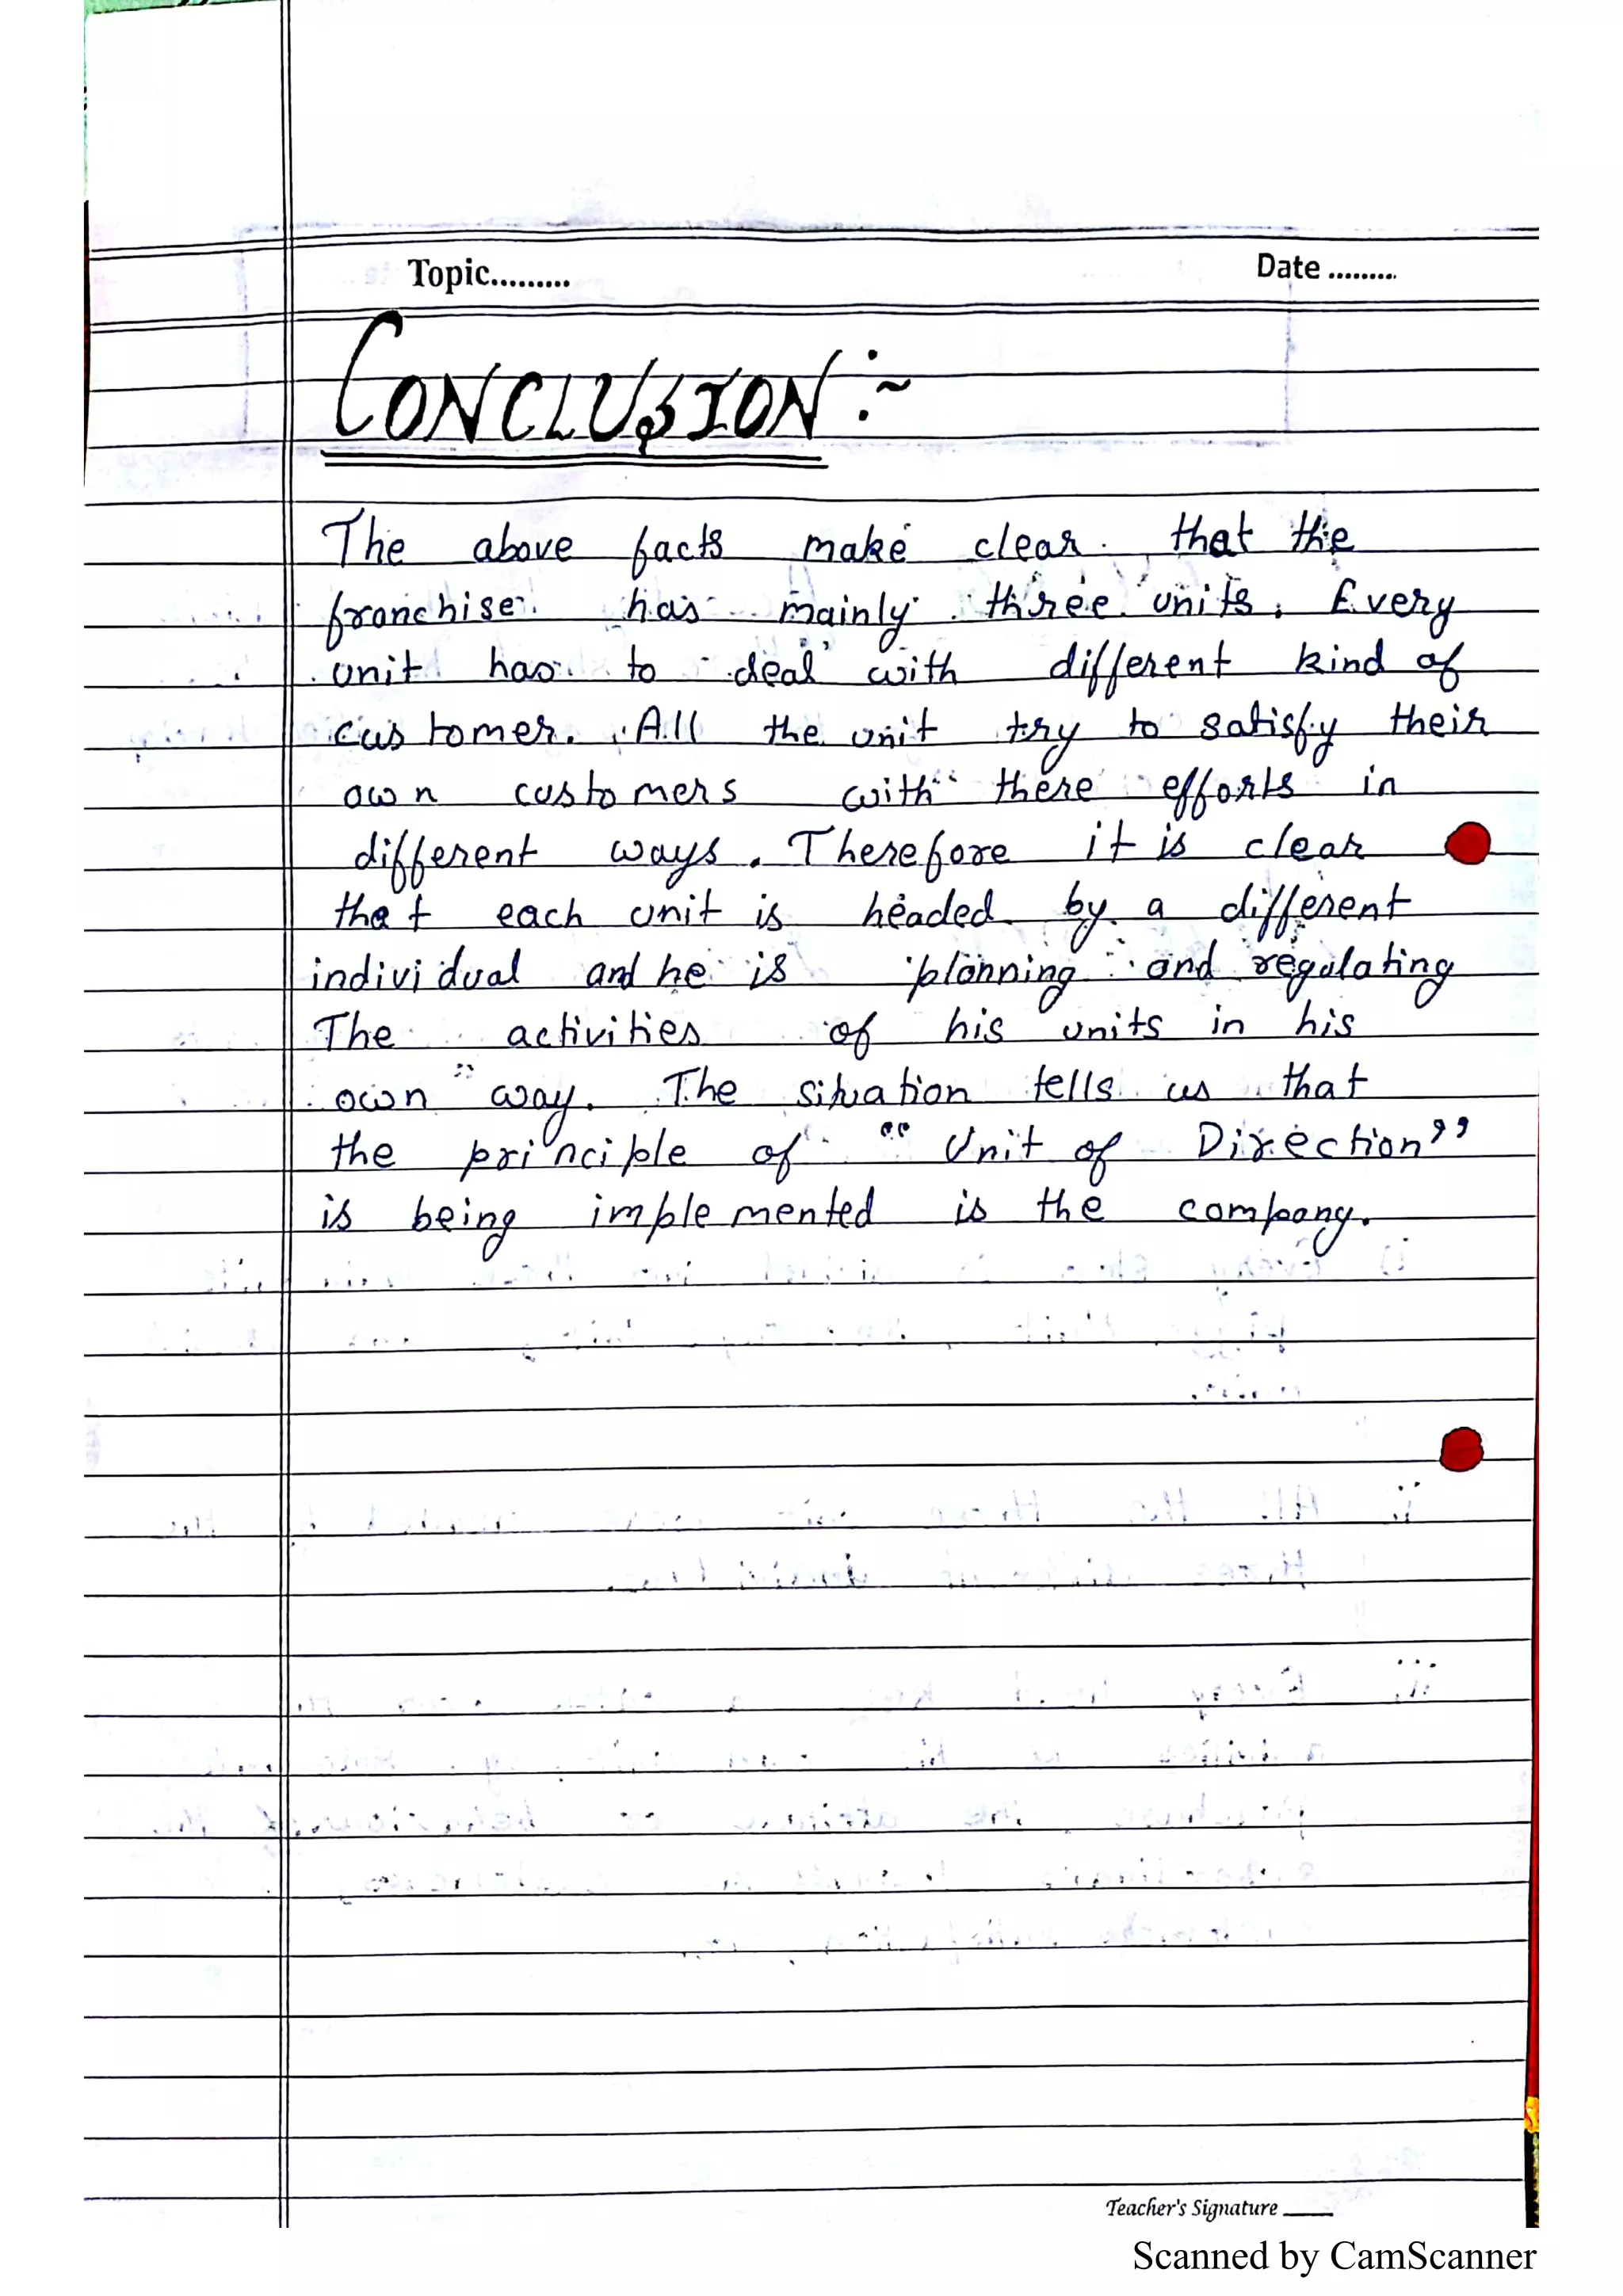 Topic.........
Date.........
CONCLUSION :~
The above facts make clear that the
franchise has mainly three units. Every
unit has to deal with different kind of
customer. All the unit try to satisfy their
own customers with there efforts in
different ways. Therefore it is clear
that each unit is headed by a different
individual and he is planning and regulating
The activities of his units in his
own way. The situation tells us that
the principle of "Unit of Direction"
is being implemented is the company.
Teacher's Signature ____
Scanned by CamScanner